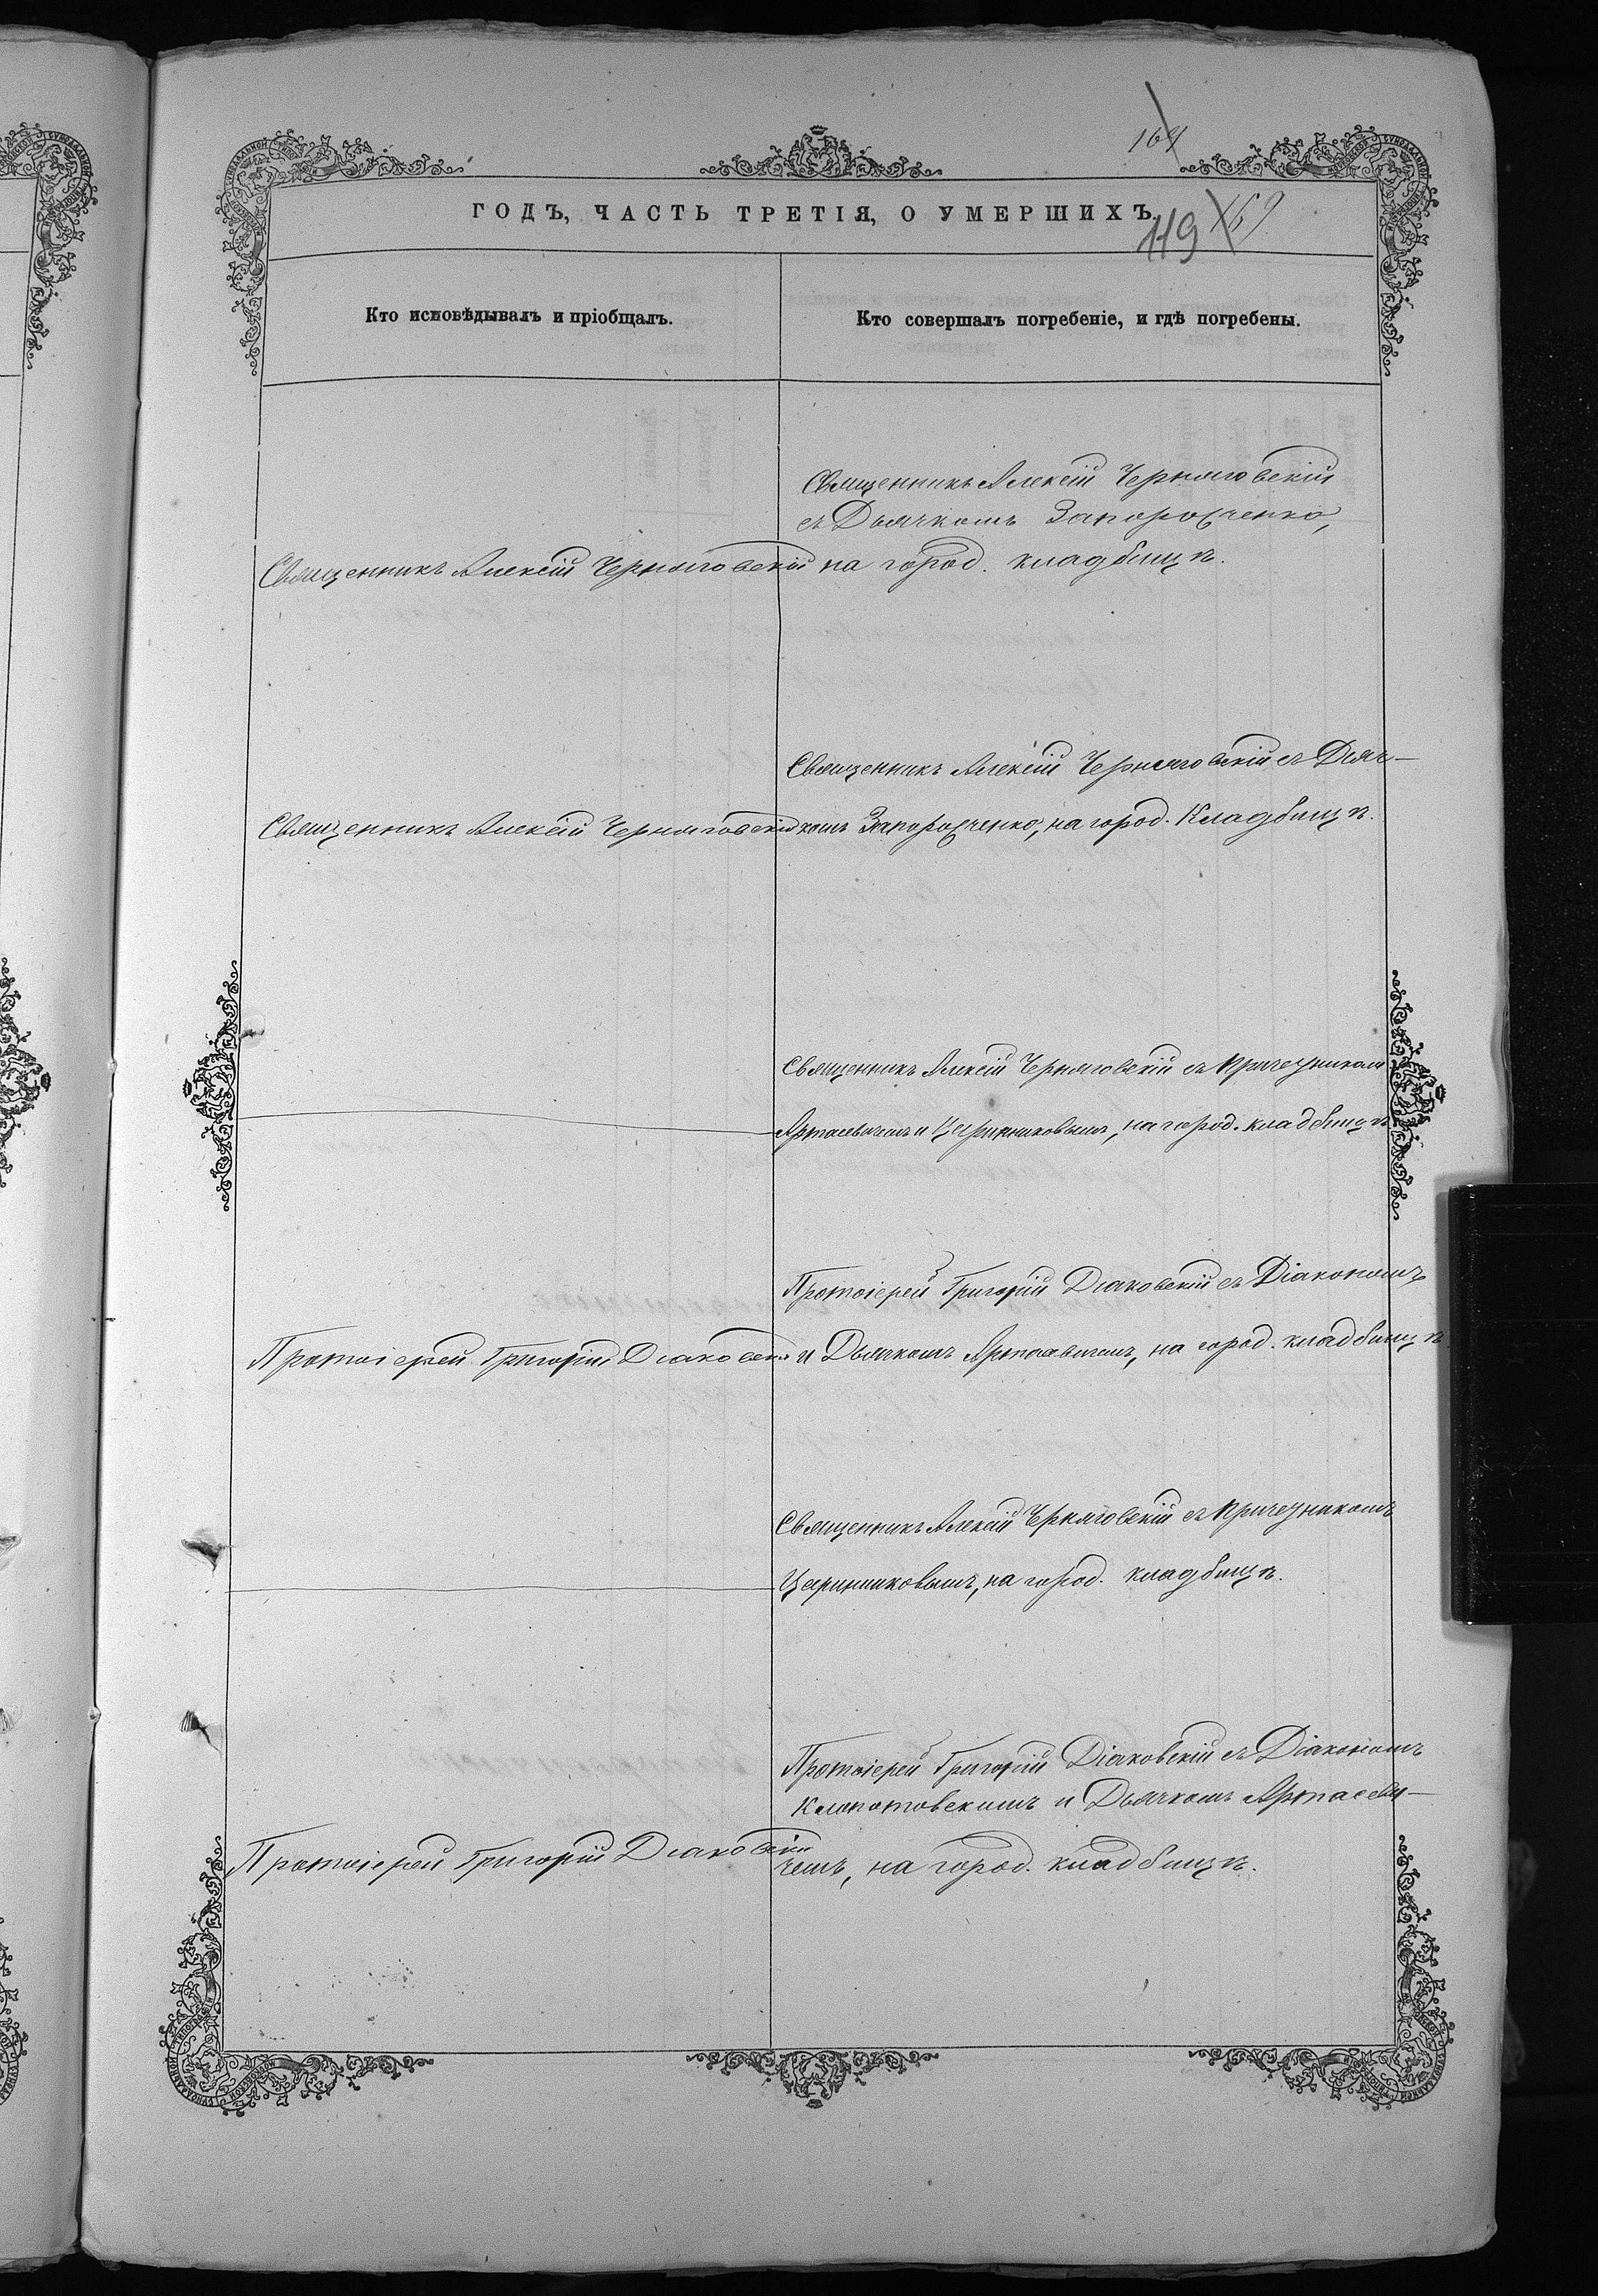 164
ГОДЪ, ЧАСТЬ ТРЕТІЯ, О УМЕРШИХЪ.
119 159
Кто исповѣдывалъ и пріобщалъ.
Кто совершалъ погребеніе, и гдѣ погребены.
Священникъ Алексій Черняговскій
съ Дьячкомъ Запорожченко,
Священникъ Алексій Черняговскій на город. кладбищѣ.
Священникъ Алексій Черняговскій съ Дьяч-
Священникъ Алексій Черняговскій комъ Запорожченко, на город. Кладбищѣ.
Священникъ Алексій Черняговскій съ Причетникам
Артасевичемъ и Царинниковымъ, на город. кладбищѣ
Протоіерей Григорій Діаковскій съ Діакономъ
Протоіерей Григорій Діаковскі и Дьячкомъ Артасевичемъ, на город. кладбищѣ
Священникъ Алексій Черняговскій съ Причетникомъ
Царинниковымъ, на город. кладбищѣ.
Протоіерей Григорій Діаковскій съ Діакономъ
Клопотовскимъ и Дьячкомъ Артасеви-
Протоіерей Григорій Діаковскій
чемъ, на город. кладбищѣ.